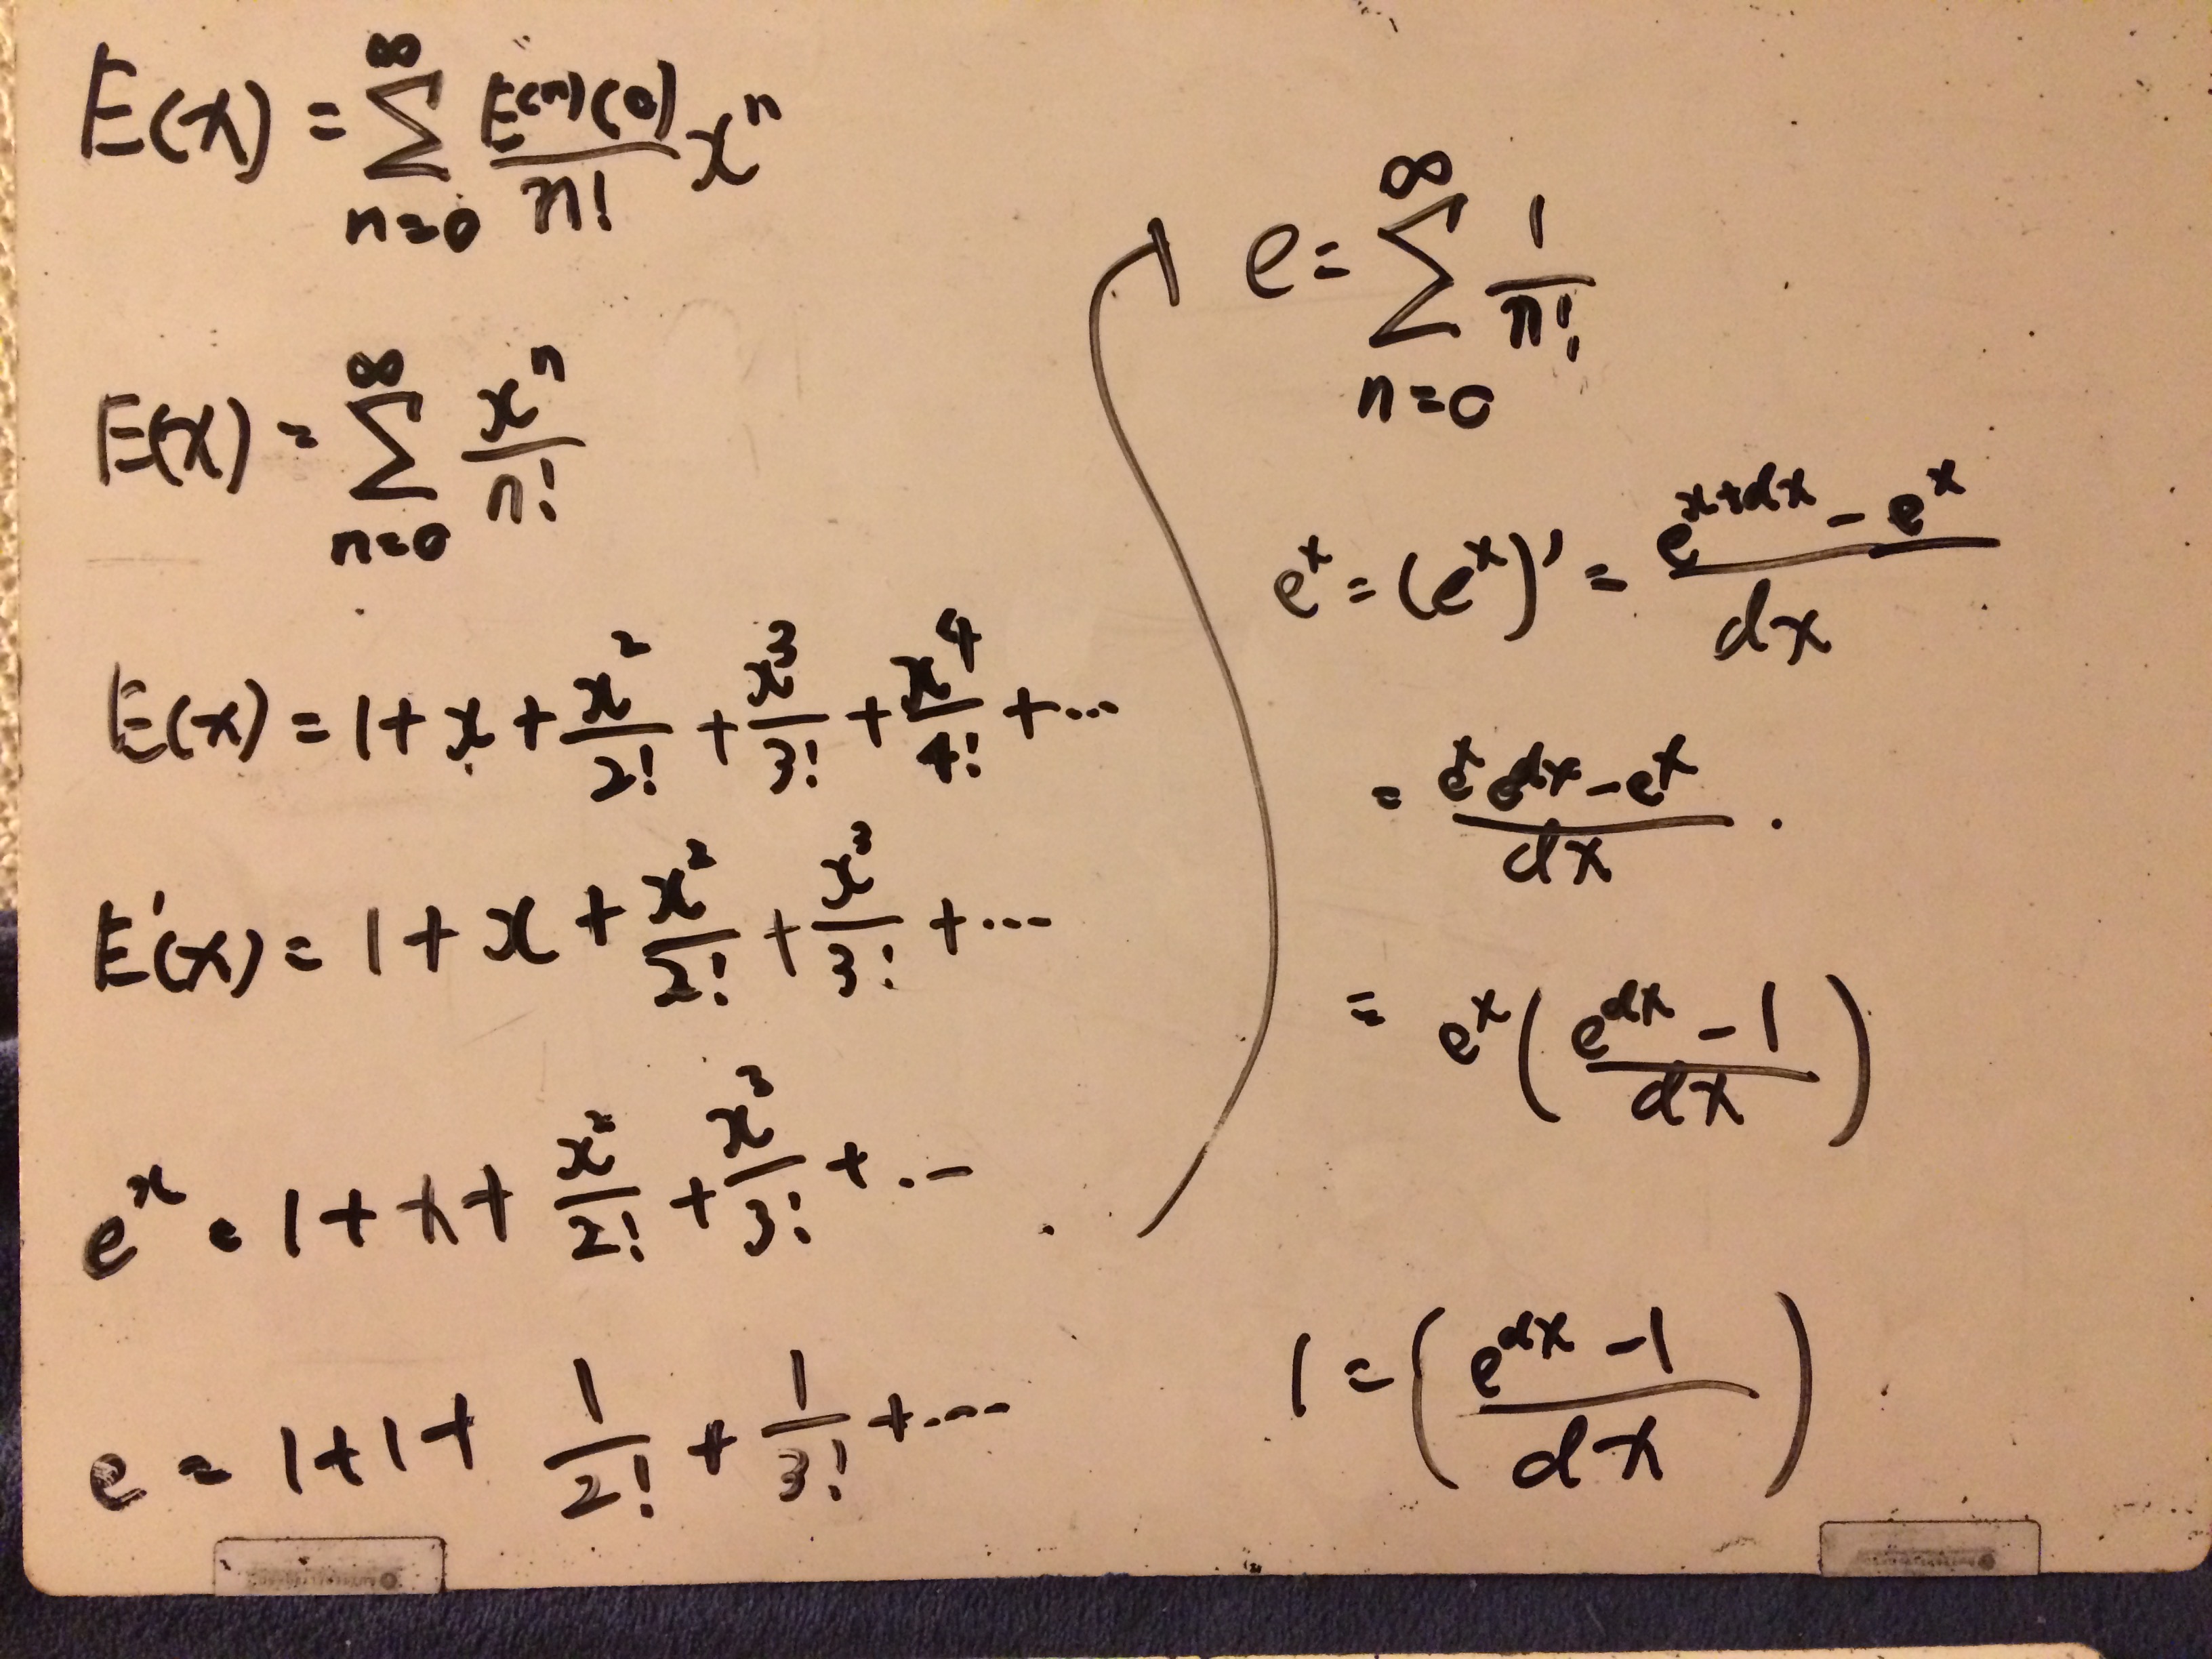 E(x) = ∑_{n=0}^{∞} E^{(n)}(0)/n! x^n
E(x) = ∑_{n=0}^{∞} x^n/n!
E(x) = 1 + x + x^2/2! + x^3/3! + x^4/4! + ...
E'(x) = 1 + x + x^2/2! + x^3/3! + ...
e^x = 1 + x + x^2/2! + x^3/3! + ...
e = 1 + 1 + 1/2! + 1/3! + ...
e = ∑_{n=0}^{∞} 1/n!
e^x = (e^x)' = (e^{x+dx} - e^x)/dx
= (e^x e^{dx} - e^x)/dx .
= e^x ((e^{dx} - 1)/dx)
1 = ((e^{dx} - 1)/dx)